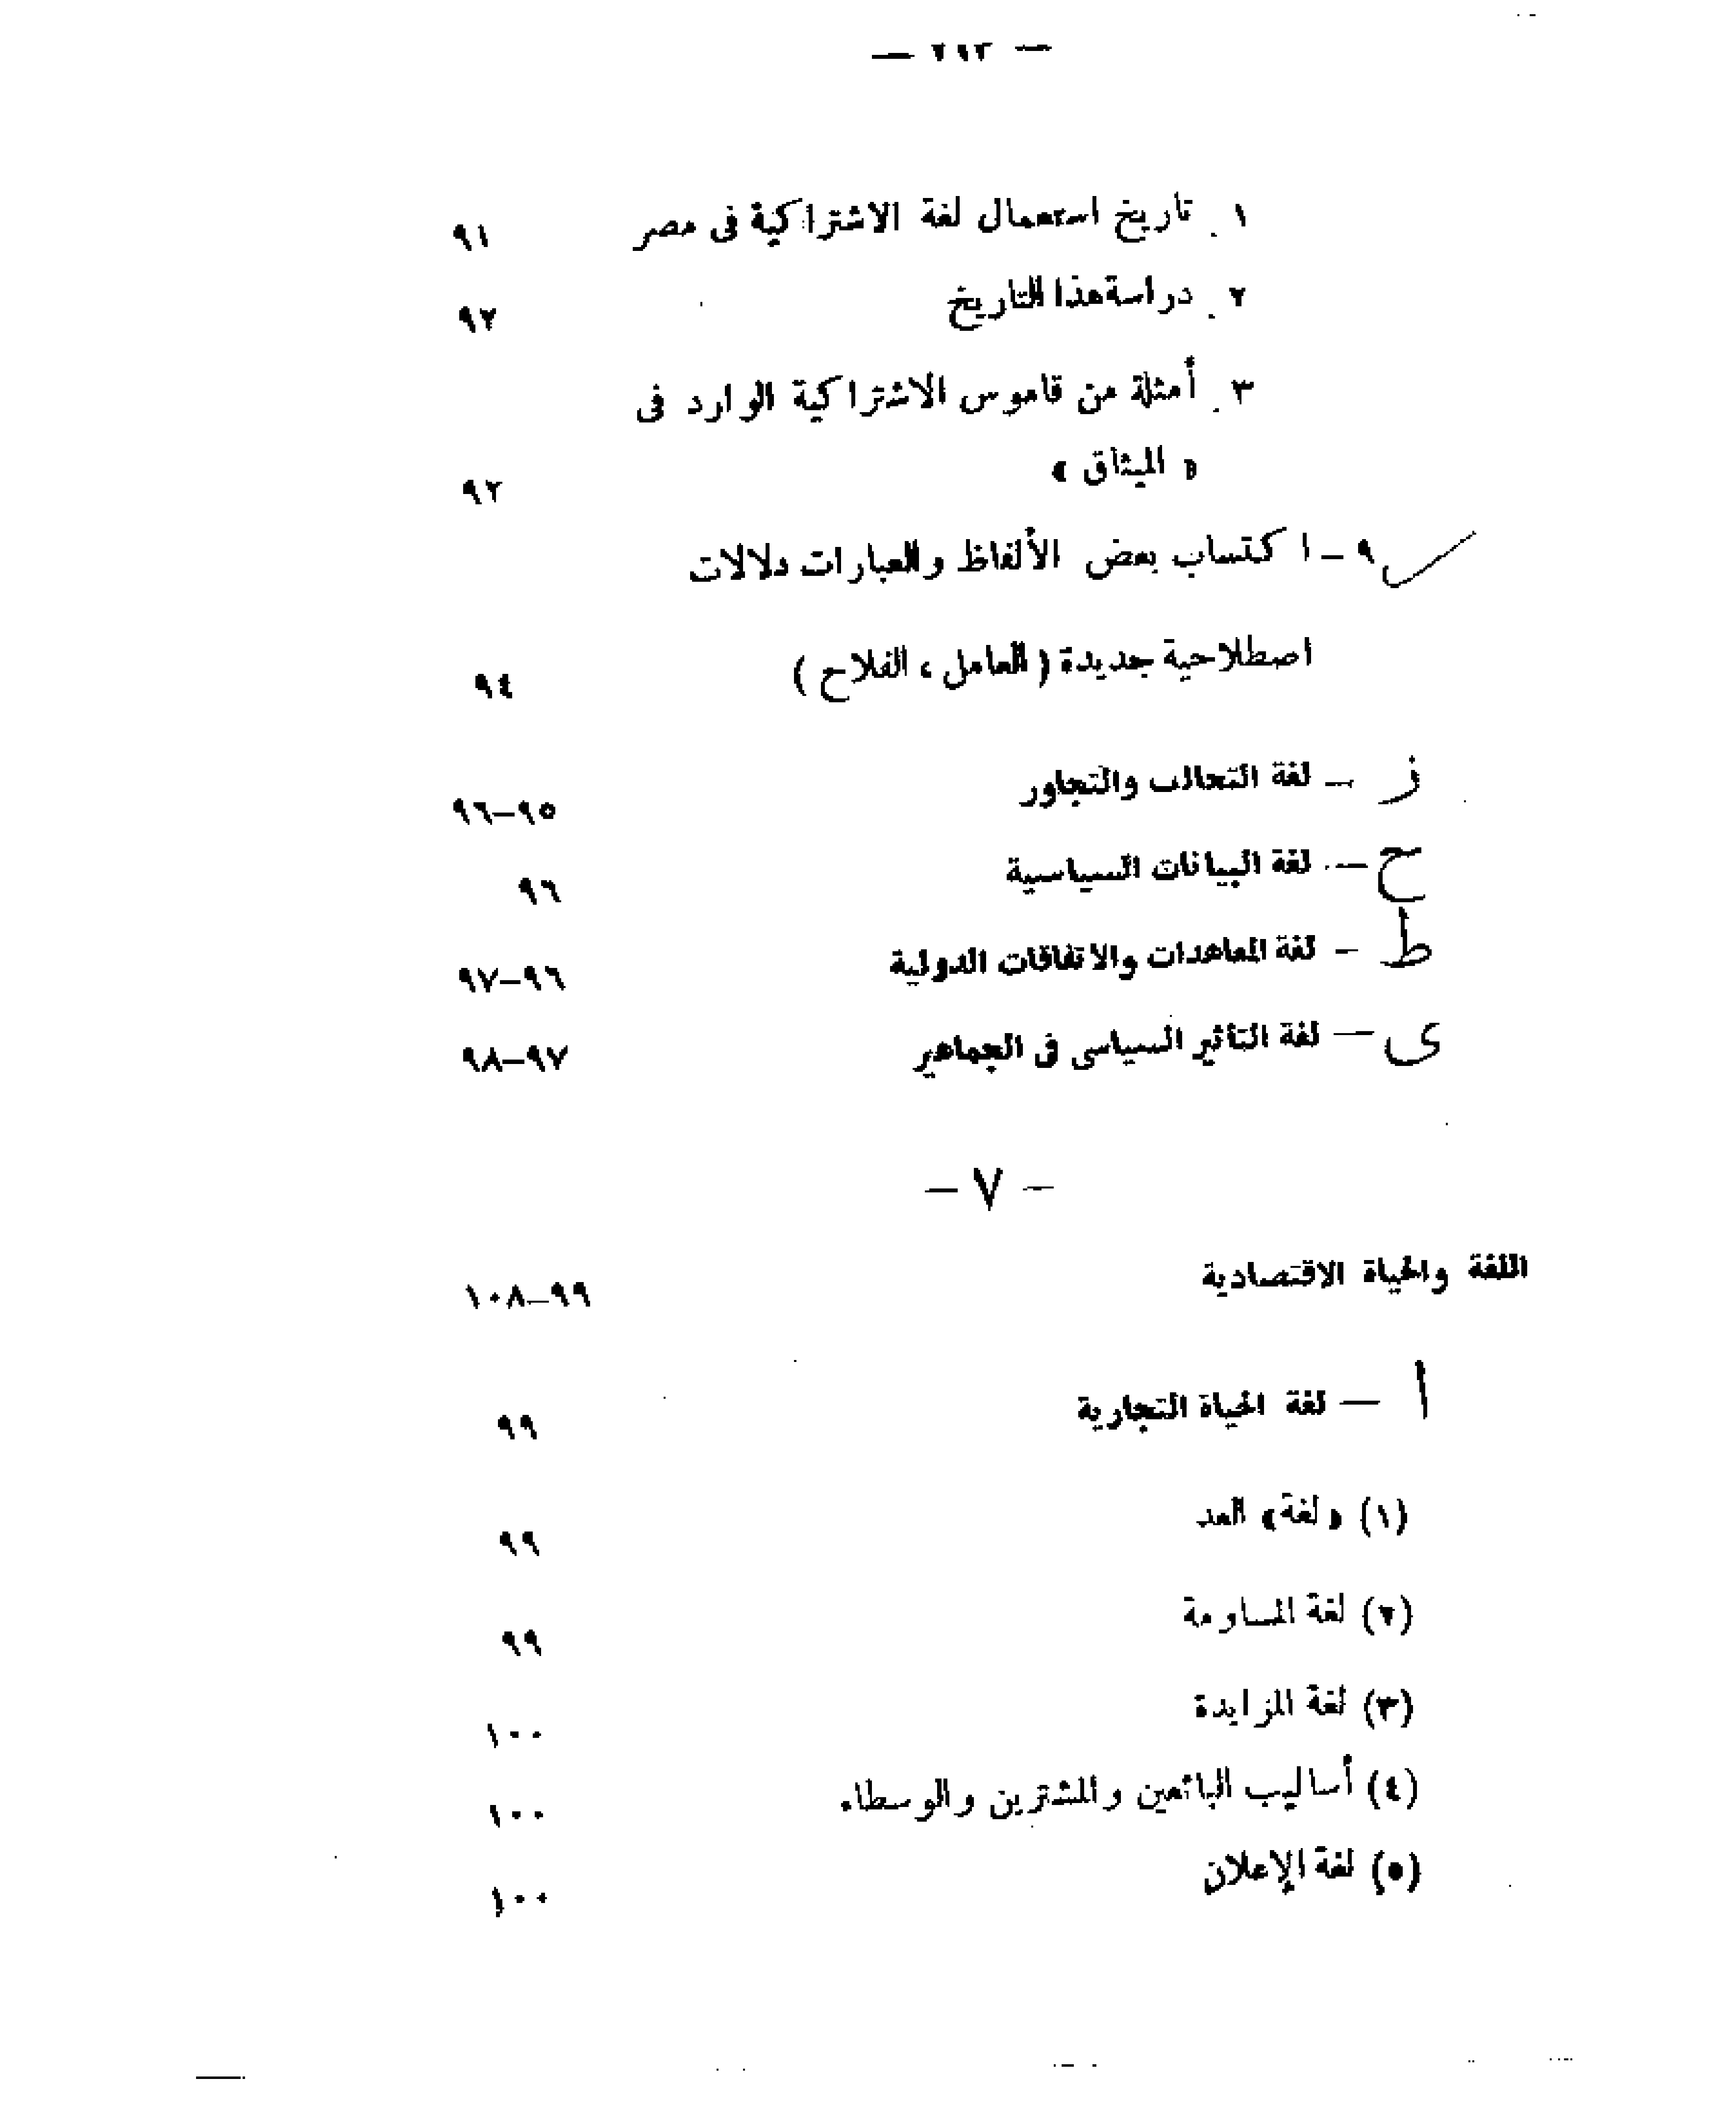 — ٢٩٣ —
١ . تاريخ استعمال لغة الاشتراكية فى مصر ٩١
٢ . دراسة هذا التاريخ ٩٢
٣ . أمثلة من قاموس الاشتراكية الوارد فى
« الميثاق » ٩٢
٩ – اكتساب بعض الألفاظ والعبارات دلالات
اصطلاحية جديدة ( العامل ، الفلاح ) ٩٤
ز – لغة التحالف والتجاور ٩٥–٩٦
ح – لغة البيانات السياسية ٩٦
ط – لغة المعاهدات والاتفاقات الدولية ٩٦–٩٧
ى – لغة التأثير السياسى فى الجماهير ٩٧–٩٨
– ٧ –
اللغة والحياة الاقتصادية ٩٩–١٠٨
ا – لغة الحياة التجارية ٩٩
(١) «لغة» العد ٩٩
(٢) لغة المساومة ٩٩
(٣) لغة المزايدة ١٠٠
(٤) أساليب البائعين والمشترين والوسطاء ١٠٠
(٥) لغة الإعلان ١٠٠